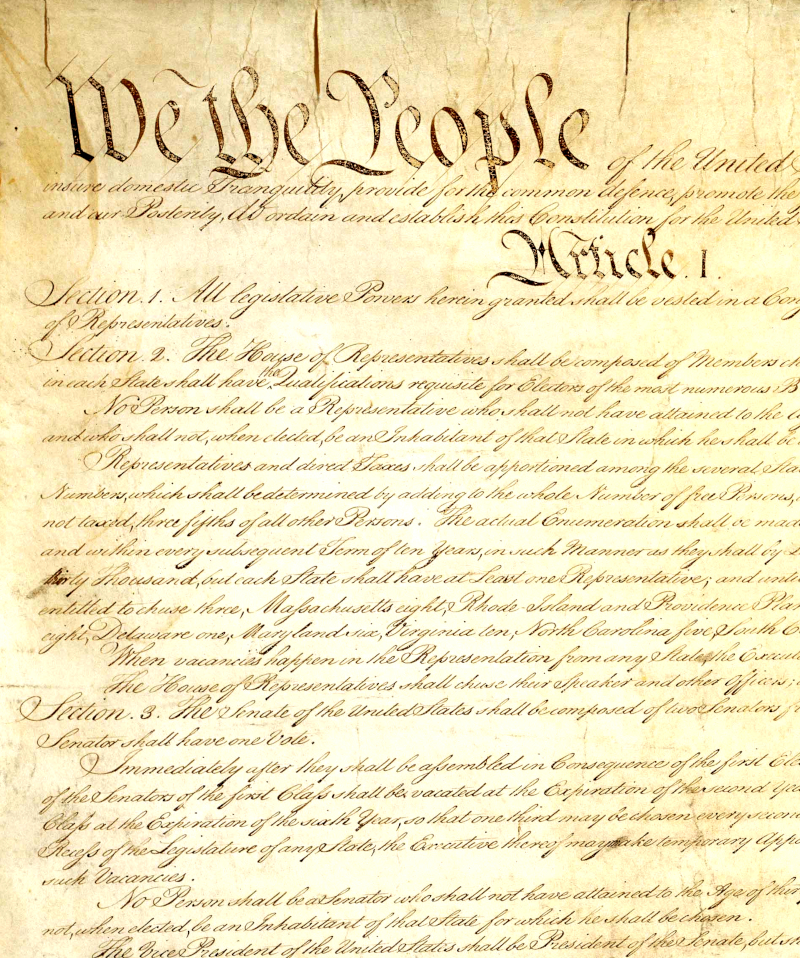 We the People of the United
insure domestic Tranquility, provide for the common defence, promote the
and our Posterity, do ordain and establish this Constitution for the United
Article. I.
Section. 1. All legislative Powers herein granted shall be vested in a Cong
of Representatives.
Section. 2. The House of Representatives shall be composed of Members ch
in each State shall have the Qualifications requisite for Electors of the most numerous B
No Person shall be a Representative who shall not have attained to the
and who shall not, when elected, be an Inhabitant of that State in which he shall be
Representatives and direct Taxes shall be apportioned among the several Sta
Numbers, which shall be determined by adding to the whole Number of free Persons,
not taxed, three fifths of all other Persons. The actual Enumeration shall be mad
and within every subsequent Term of ten Years, in such Manner as they shall by
thirty Thousand, but each State shall have at Least one Representative; and unti
entitled to chuse three, Massachusetts eight, Rhode Island and Providence Plan
eight, Delaware one, Maryland six, Virginia ten, North Carolina five, South C
When vacancies happen in the Representation from any State, the Execut
The House of Representatives shall chuse their Speaker and other Officers;
Section. 3. The Senate of the United States shall be composed of two Senators f
Senator shall have one Vote.
Immediately after they shall be assembled in Consequence of the first Ele
of the Senators of the first Class shall be vacated at the Expiration of the second Yea
Class at the Expiration of the sixth Year, so that one third may be chosen every secon
Recess of the Legislature of any State, the Executive thereof may make temporary Appo
such Vacancies.
No Person shall be a Senator who shall not have attained to the Age of thir
not, when elected, be an Inhabitant of that State for which he shall be chosen.
The Vice President of the United States shall be President of the Senate, but sh